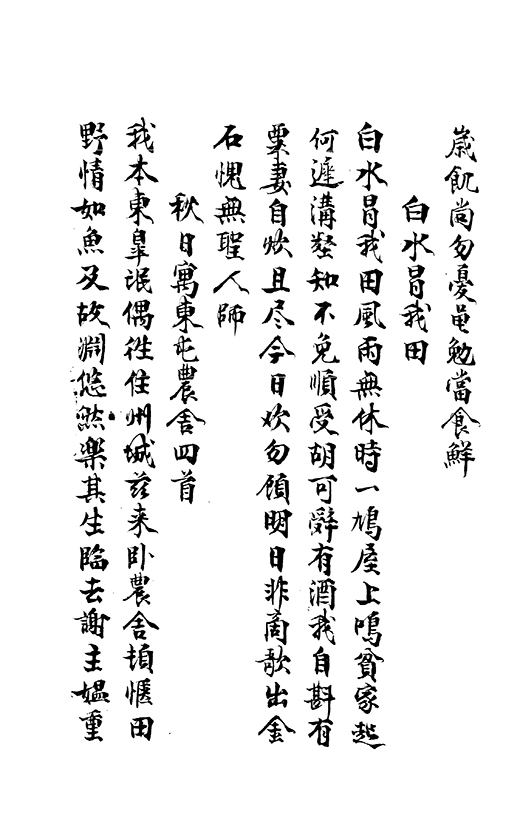 歳飢尚勿憂黽勉當食鮮
白水冒我田
白水冒我田風雨無休時一鳩屋上鳴貧家起
何遲溝壑知不免順受胡可辭有酒我自斟有
粟妻自炊且尽今日欢勿顧明日非商歌出金
石愧無聖人師
秋日寓東屯農舍四首
我本東皐氓偶徃住州城茲来卧農舍頓愜田
野情如魚及故淵悠然樂其生臨去謝主媼重